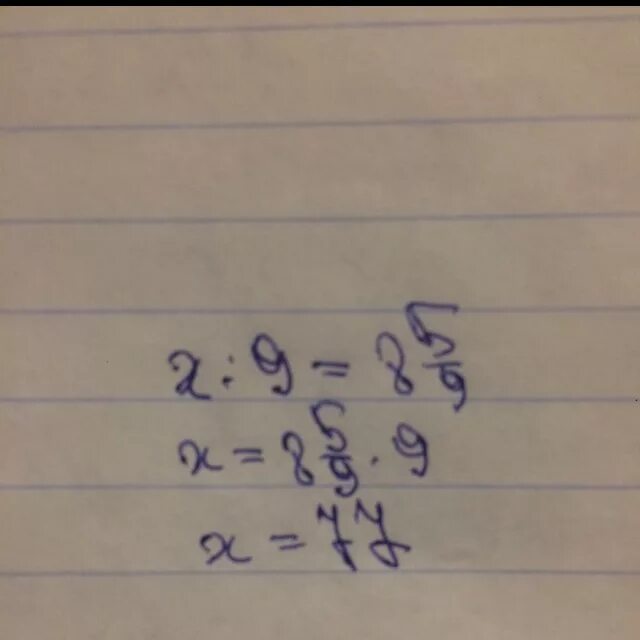 x : 9 = 8 5/9
x = 8 5/9 · 9
x = 77